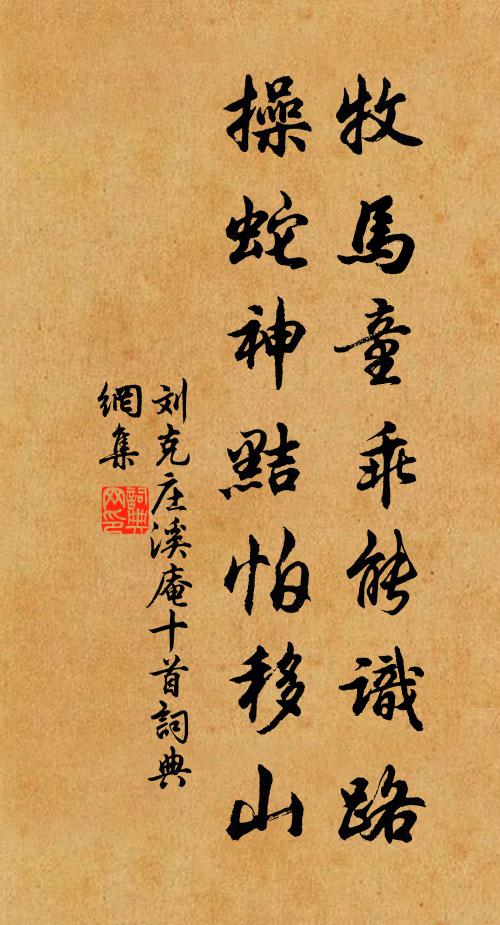 牧馬童乖能識路
操蛇神黠怕移山
刘克庄溪庵十首詞典
網集
詞典網印